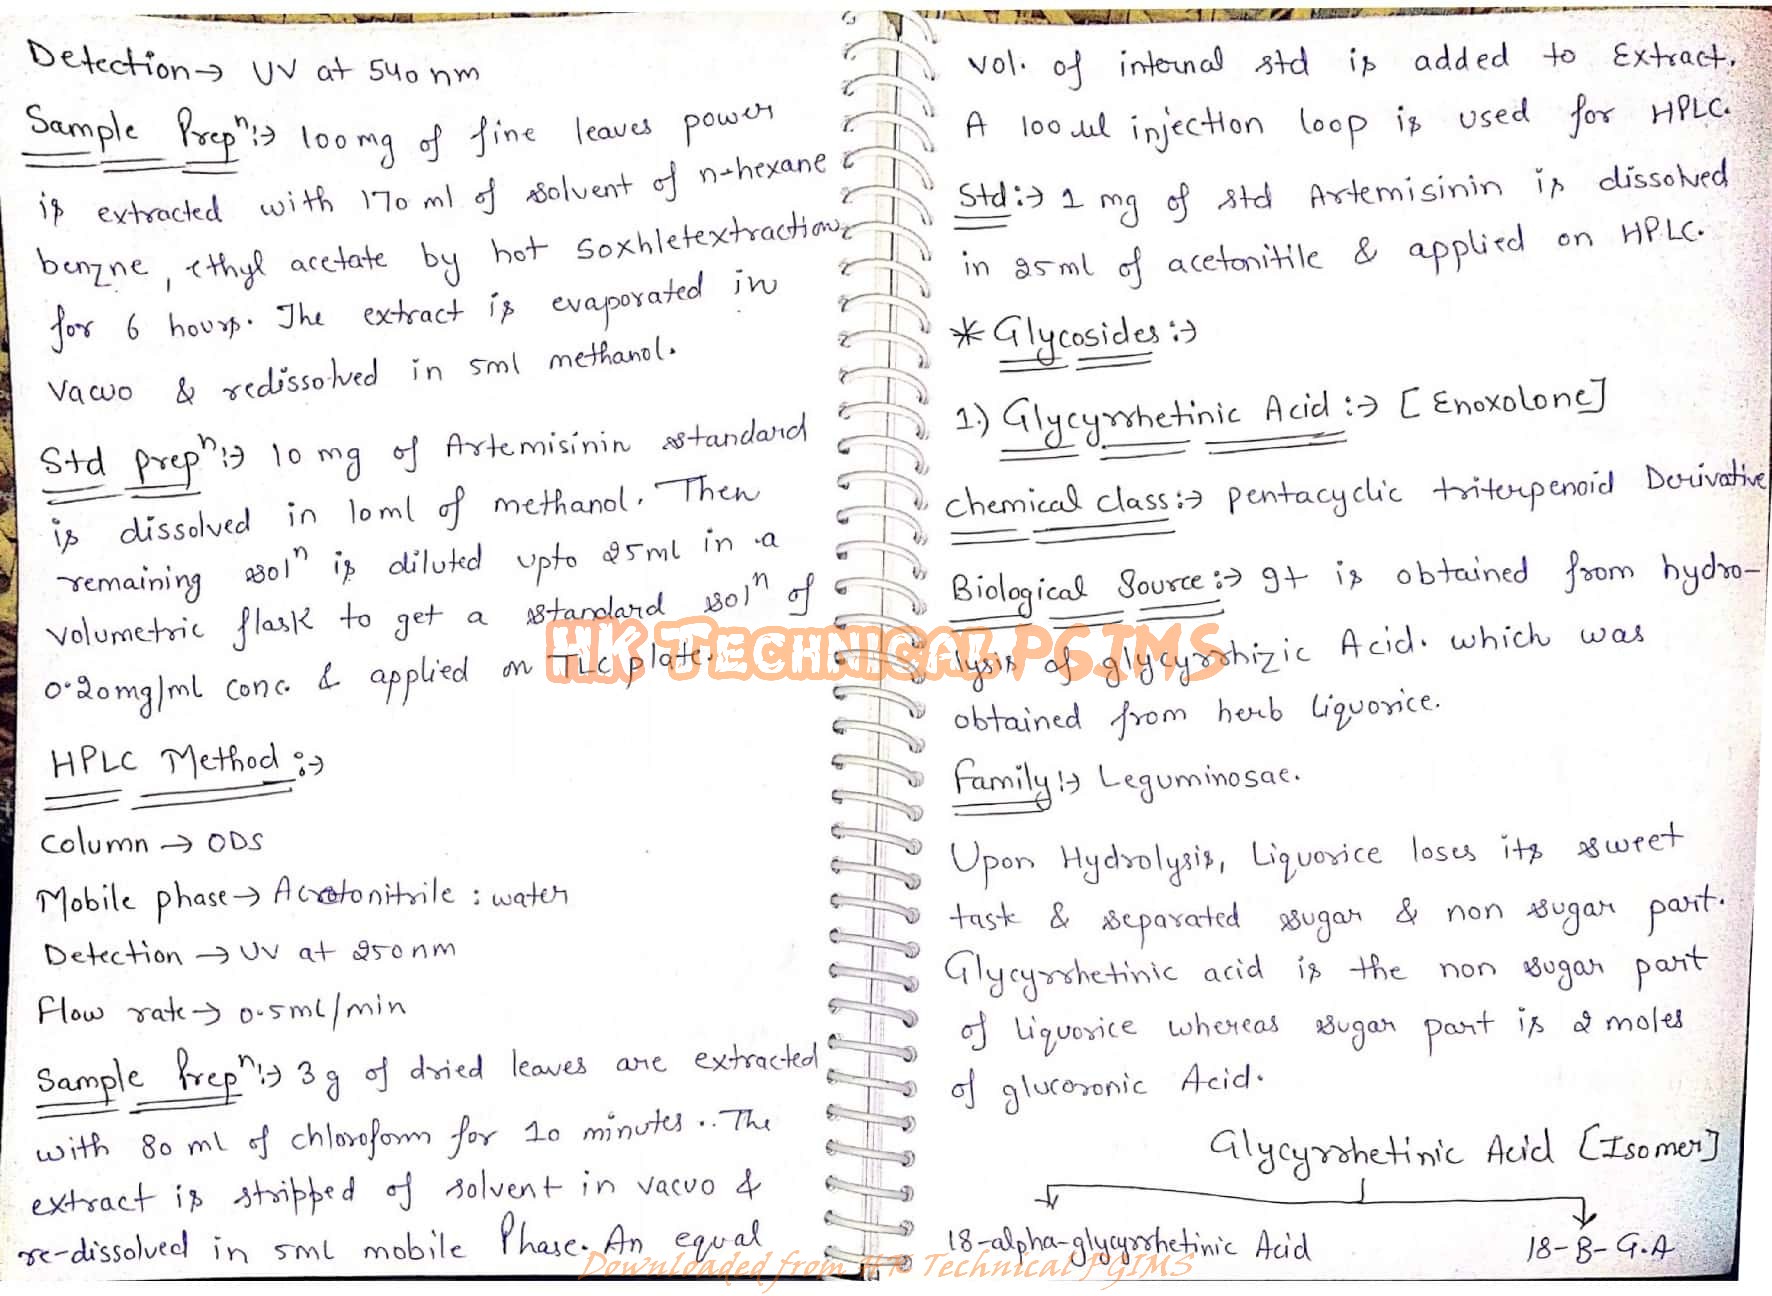 Detection → UV at 540 nm
Sample Prepⁿ:→ 100 mg of fine leaves power
is extracted with 170 ml of solvent of n-hexane
benzne, ethyl acetate by hot soxhletextraction
for 6 hours. The extract is evaporated in
vacuo & redissolved in 5ml methanol.
Std prepⁿ:→ 10 mg of Artemisinin standard
is dissolved in 10ml of methanol. Then
remaining solⁿ is diluted upto 25ml in a
volumetric flask to get a standard solⁿ of
0.20mg/ml conc. & applied on TLC plate.
HPLC Method:→
Column → ODS
Mobile phase → Acetonitrile : water
Detection → UV at 250nm
Flow rate → 0.5ml/min
Sample Prepⁿ:→ 3g of dried leaves are extracted
with 80 ml of chloroform for 10 minutes.. The
extract is stripped of solvent in vacuo &
re-dissolved in 5ml mobile Phase. An equal
vol. of internal std is added to Extract.
A 100 ul injection loop is used for HPLC.
Std:→ 1 mg of std Artemisinin is dissolved
in 25ml of acetonitile & applied on HPLC.
* Glycosides:→
1.) Glycyrrhetinic Acid:→ [Enoxolone]
Chemical class:→ pentacyclic triterpenoid Derivative
Biological Source:→ It is obtained from hydro-
lysis of glycyrrhizic Acid. which was
obtained from herb liquorice.
Family:→ Leguminosae.
Upon Hydrolysis, Liquorice loses its sweet
task & separated sugar & non sugar part.
Glycyrrhetinic acid is the non sugar part
of liquorice whereas sugar part is 2 moles
of glucoronic Acid.
Glycyrrhetinic Acid [Isomer]
18-alpha-glycyrrhetinic Acid 18-B-G.A
HK Technical PGIMS
Downloaded from HK Technical PGIMS